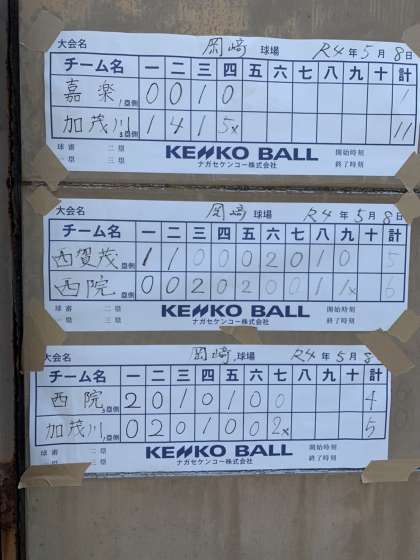 大会名 岡崎 球場 R4年5月8日
チーム名 一 二 三 四 五 六 七 八 九 十 計
嘉楽 1塁側 0 0 1 0 1
加茂川 3塁側 1 4 1 5x 11
球審 二塁 KENKO BALL 開始時刻
一塁 三塁 ナガセケンコー株式会社 終了時刻
大会名 岡崎 球場 R4年5月8日
チーム名 一 二 三 四 五 六 七 八 九 十 計
西賀茂 塁側 1 1 0 0 0 2 0 1 0 5
西院 塁側 0 0 2 0 2 0 0 1 1x 6
球審 二塁 KENKO BALL 開始時刻
一塁 三塁 ナガセケンコー株式会社 終了時刻
大会名 岡崎 球場 R4年5月8
チーム名 一 二 三 四 五 六 七 八 九 十 計
西院 3塁側 2 0 1 0 1 0 0 4
加茂川 1塁側 0 2 0 1 0 0 2x 5
球審 二塁 KENKO BALL 開始時刻
一塁 三塁 ナガセケンコー株式会社 終了時刻